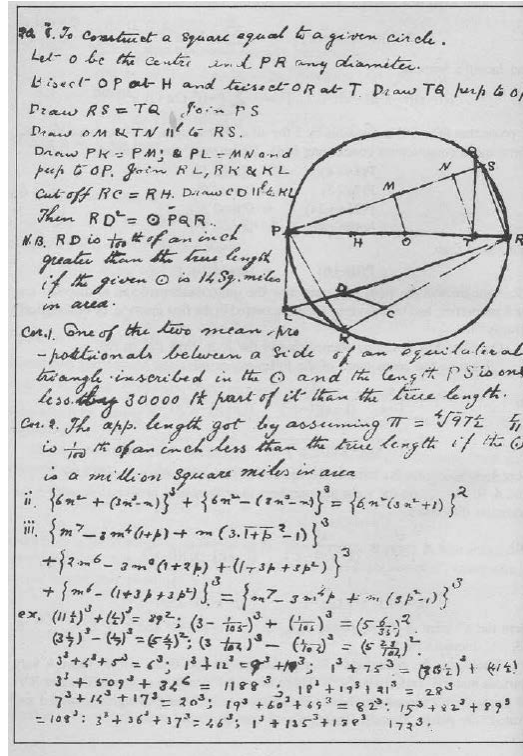 20 i. To construct a square equal to a given circle.
Let O be the centre and PR any diameter.
Bisect OP at H and trisect OR at T. Draw TQ perp to OP
Draw RS = TQ Join PS
Draw OM & TN ||l to RS.
Draw PK = PM; & PL = MN and
perp to OP. Join RL, RK & KL
Cut off RC = RH. Draw CD ||l to KL
Then RD² = ⊙ PQR.
N.B. RD is 1/100 th of an inch
greater than the true length
if the given ⊙ is 14 Sq. miles
in area.
Q
S
N
M
P
H
O
T
R
D
C
L
K
Cor. 1. One of the two mean pro
-portionals between a side of an equilateral
triangle inscribed in the ⊙ and the length PS is only
less by 30000 th part of it than the true length.
Cor. 2. The app. length got by assuming π = ∜97½ 1/11
is 1/100 th of an inch less than the true length if the ⊙
is a million square miles in area
ii. {6n² + (3n³-n)}³ + {6n² - (3n³-n)}³ = {6n²(3n²+1)}²
iii. {m⁷ - 3m⁴(1+p) + m(3.1+p² - 1)}³
+ {2m⁶ - 3m³(1+2p) + (1+3p+3p²)}³
+ {m⁶ - (1+3p+3p²)}³ = {m⁷ - 3m⁴p + m(3p²-1)}³
ex. (11½)³ + (½)³ = 39²; (3 - 1/105)³ + (1/105)³ = (5 6/35)²
(3 1/7)³ - (1/7)³ = (5 4/7)²; (3 1/104)³ - (1/104)³ = (5 23/104)²
3³+4³+5³ = 6³; 1³+12³ = 9³+10³; 1³+75³ =
3³ + 509³ + 34⁶ = 1188³; 18³+19³+21³ = 28³
7³+14³+17³ = 20³; 19³+60³+69³ = 82³: 15³+82³+89³
= 108³: 3³+36³+37³ = 46³; 1³+135³+138³ 172³.